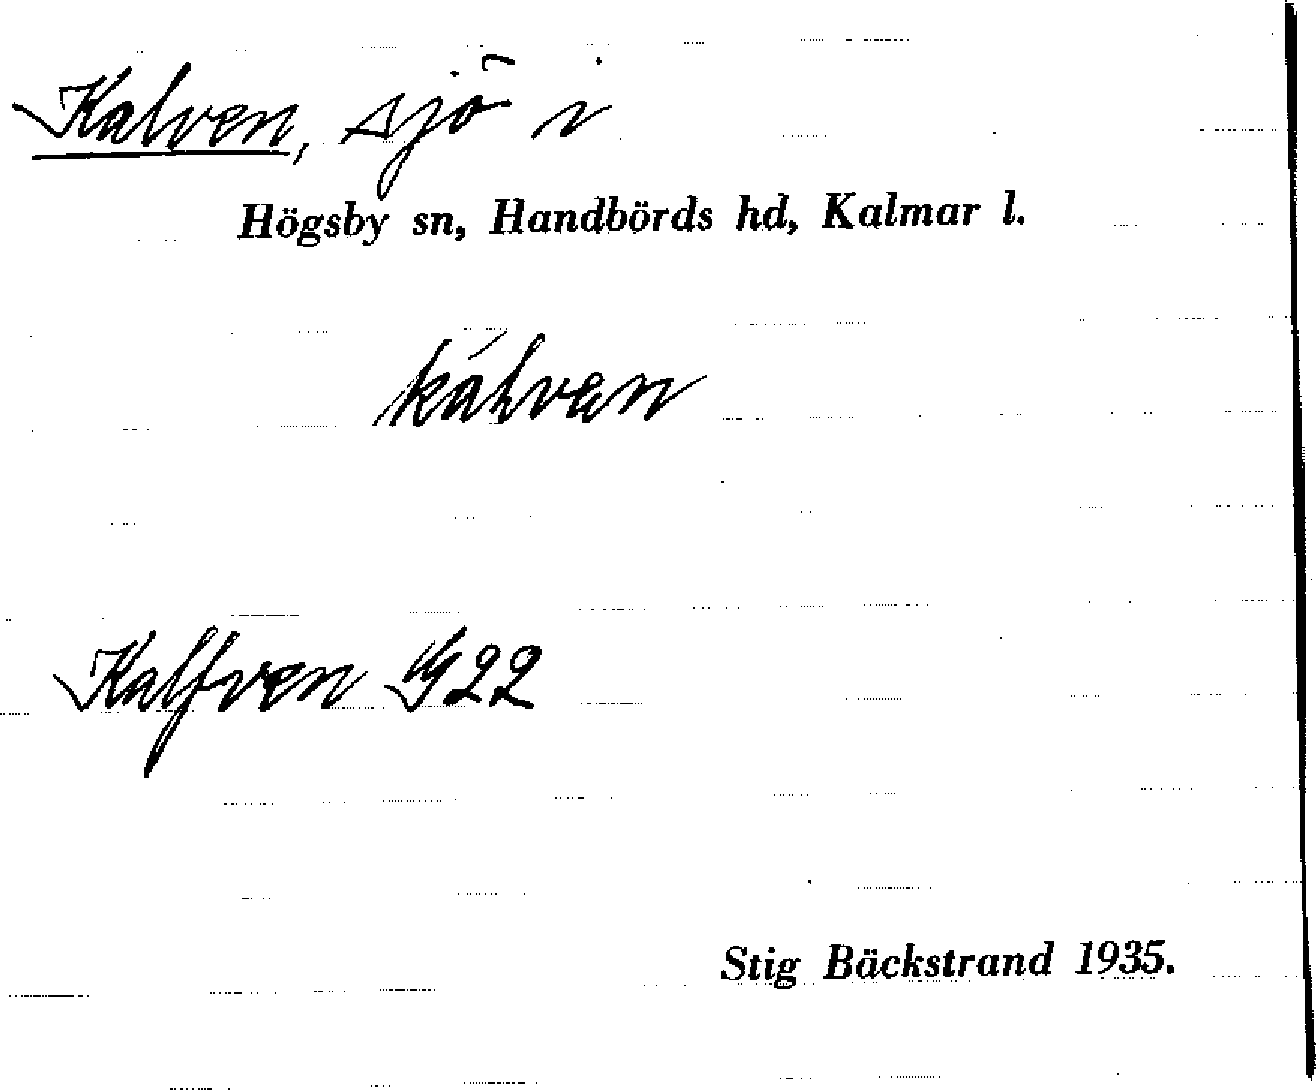 Kalven, sjö i
Högsby sn, Handbörds hd, Kalmar l.
kálven
Kalfven G22
Stig Bäckstrand 1935.